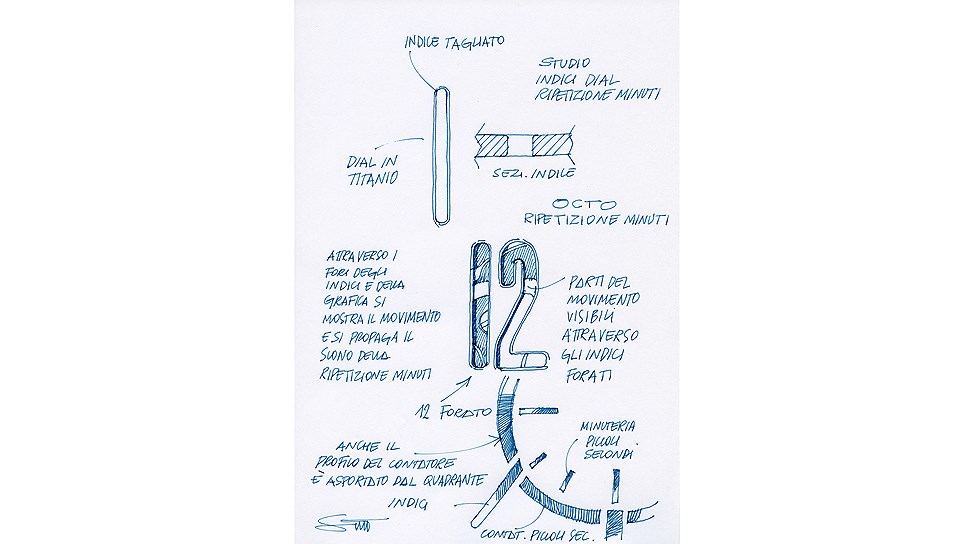 INDICE TAGLIATO
STUDIO
INDICI DIAL
RIPETIZIONE MINUTI
DIAL IN
TITANIO
SEZ. INDICE
OCTO
RIPETIZIONE MINUTI
ATTRAVERSO I
FORI DEGLI
INDICI E DELLA
GRAFICA SI
MOSTRA IL MOVIMENTO
E SI PROPAGA IL
SUONO DELLA
RIPETIZIONE MINUTI
12
PARTI DEL
MOVIMENTO
VISIBILI
ATTRAVERSO
GLI INDICI
FORATI
12 FORATO
MINUTERIA
PICCOLI
SECONDI
ANCHE IL
PROFILO DEL CONTATORE
È ASPORTATO DAL QUADRANTE
INDICI
CONTAT. PICCOLI SEC.